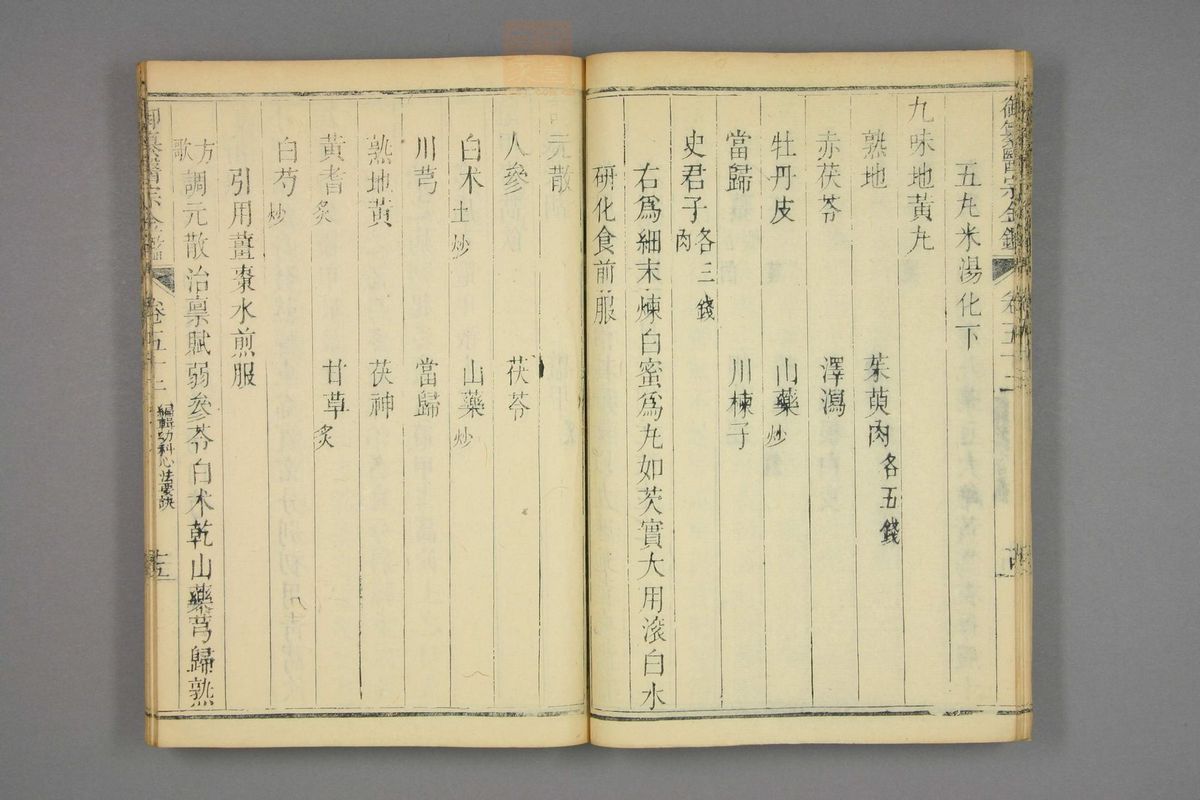 御纂醫宗金鑑
五丸米湯化下
九味地黃丸
熟地　茱萸肉各五錢
赤茯苓　澤瀉
牡丹皮　山藥炒
當歸　川楝子
史君子肉各三錢
右爲細末煉白蜜爲丸如芡實大用滚白水
研化食前服
元散
人參　茯苓
白术土炒　山藥炒
川芎　當歸
熟地黃　茯神
黃耆炙　甘草炙
白芍炒
引用薑棗水煎服
方歌調元散治禀賦弱參苓白术乾山藥芎歸熟
御纂醫宗金鑑　編輯幼科心法要訣　十五